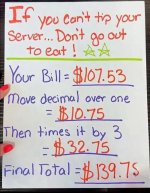 If you can't tip your
server... Don't go out
to eat!
Your Bill = $107.53
Move decimal over one
= $10.75
Then times it by 3
= $32.75
Final Total = $139.75